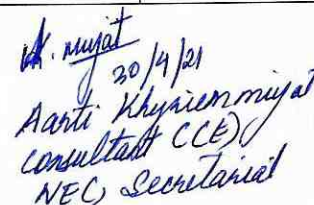 A. mujat
30/4/21
Aarti Khyriemmujat
Consultant (CE)
NEC, Secretariat